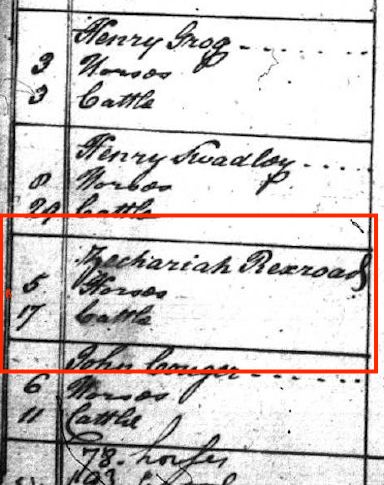 Henry Grog
3 Horses
3 Cattle
Henry Swadley
8 Horses
29 Cattle
Zechariah Rexroad
5 Horses
17 Cattle
John Couger
6 Horses
11 Cattle
78 horses
193